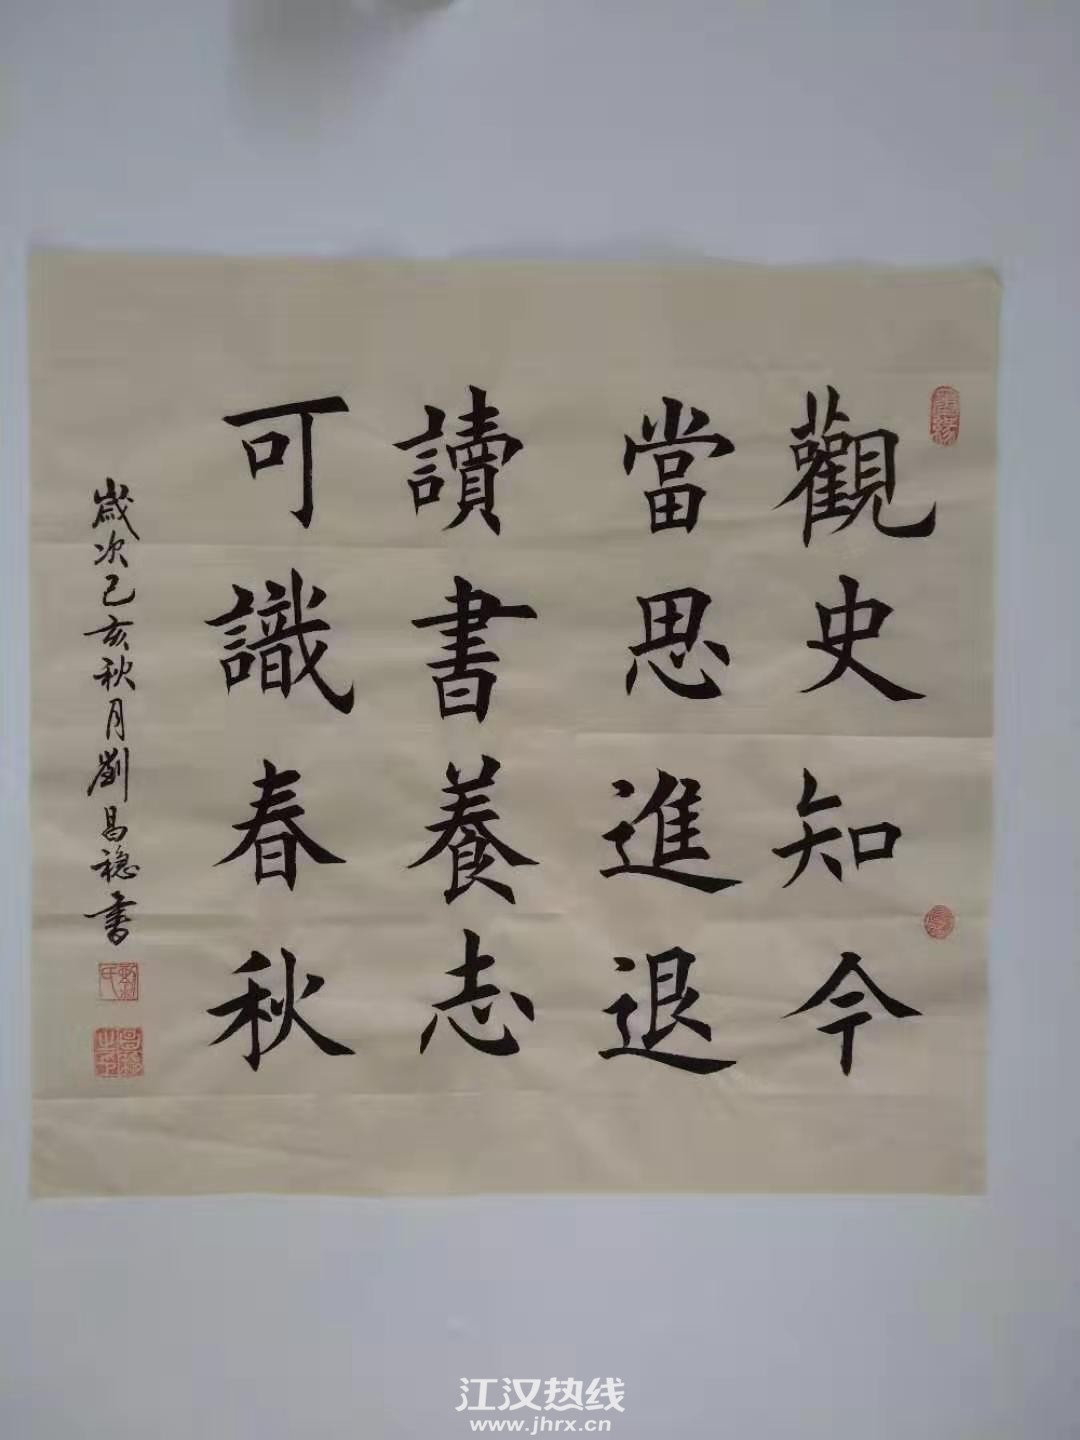 觀史知今
當思進退
讀書養志
可識春秋
歲次己亥秋月劉昌穩書
江汉热线
www.jhrx.cn